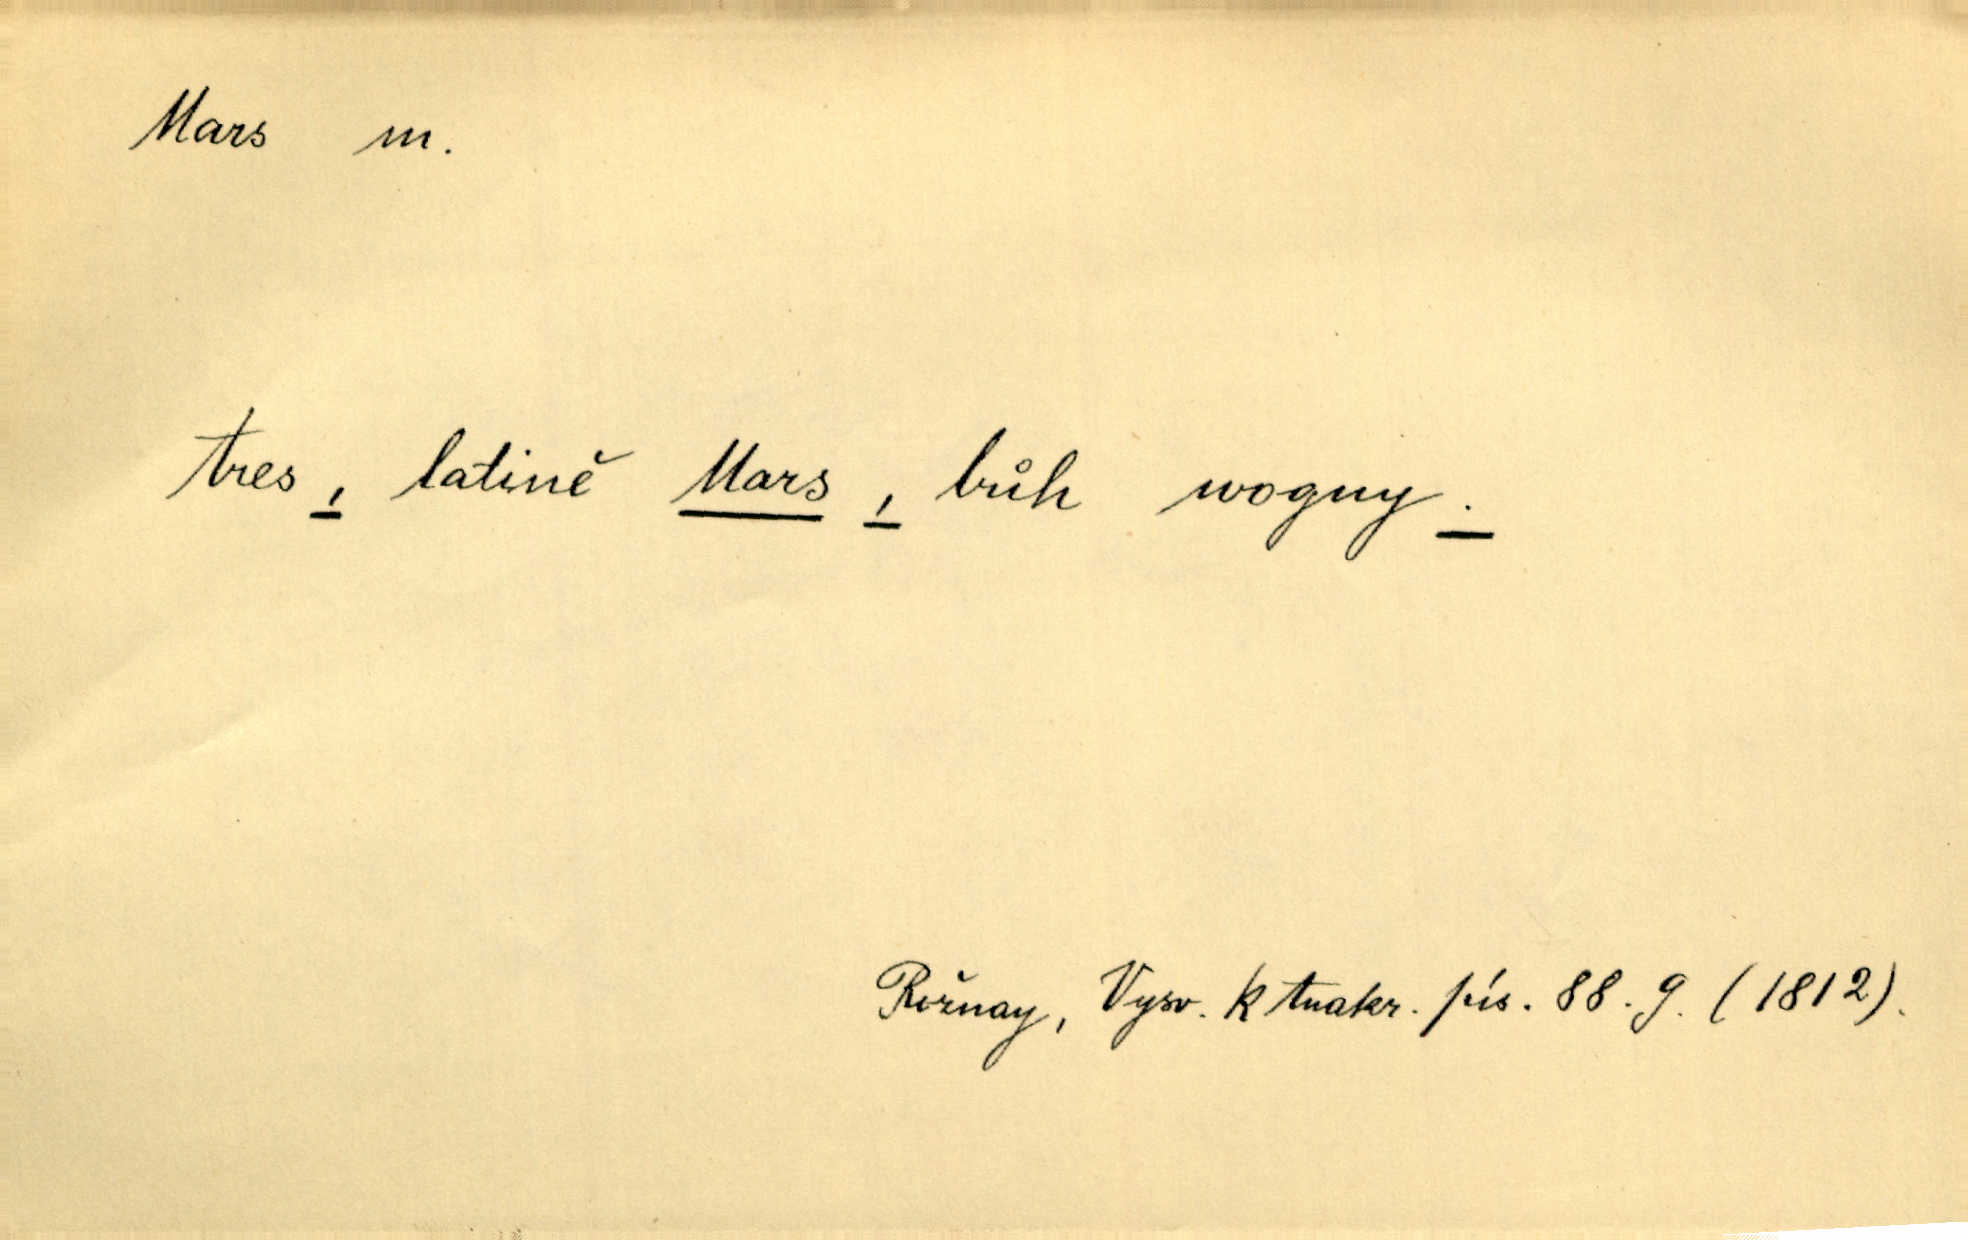 Mars m.
Ares, latině Mars, bůh wogny.
Rožnay, Vysv. k Anakr. pís. 88. 9. (1812).